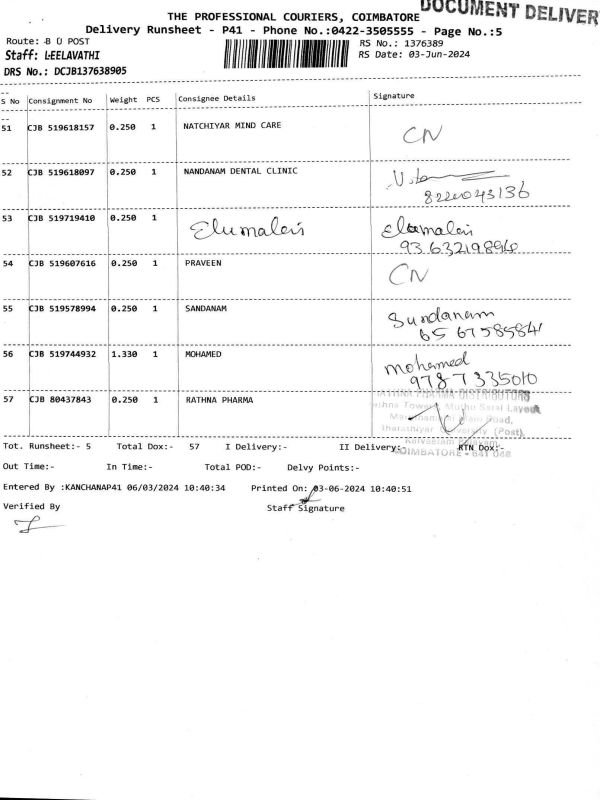 DOCUMENT DELIVER
THE PROFESSIONAL COURIERS, COIMBATORE
Delivery Runsheet - P41 - Phone No.:0422-3505555 - Page No.:5
Route: B U POST
RS No.: 1376389
Staff: LEELAVATHI
RS Date: 03-Jun-2024
DRS No.: DCJB137638905
S No Consignment No Weight PCS Consignee Details Signature
51 CJB 519618157 0.250 1 NATCHIYAR MIND CARE CN
52 CJB 519618097 0.250 1 NANDANAM DENTAL CLINIC
8220043136
53 CJB 519719410 0.250 1 Elumalai Elumalai
9363219894
54 CJB 519607616 0.250 1 PRAVEEN CN
55 CJB 519578994 0.250 1 SANDANAM Sundanam
6567585841
56 CJB 519744932 1.330 1 MOHAMED mohamed
9787335010
57 CJB 80437843 0.250 1 RATHNA PHARMA
RATHNA PHARMA DISTRIBUTORS
Towers Muthu Sarai Layout
Road,
Bharathiyar University (Post),
COIMBATORE - 641
Tot. Runsheet:- 5 Total Dox:- 57 I Delivery:- II Delivery:- RTN Dox:-
Out Time:- In Time:- Total POD:- Delvy Points:-
Entered By :KANCHANAP41 06/03/2024 10:40:34 Printed On: 03-06-2024 10:40:51
Verified By Staff Signature